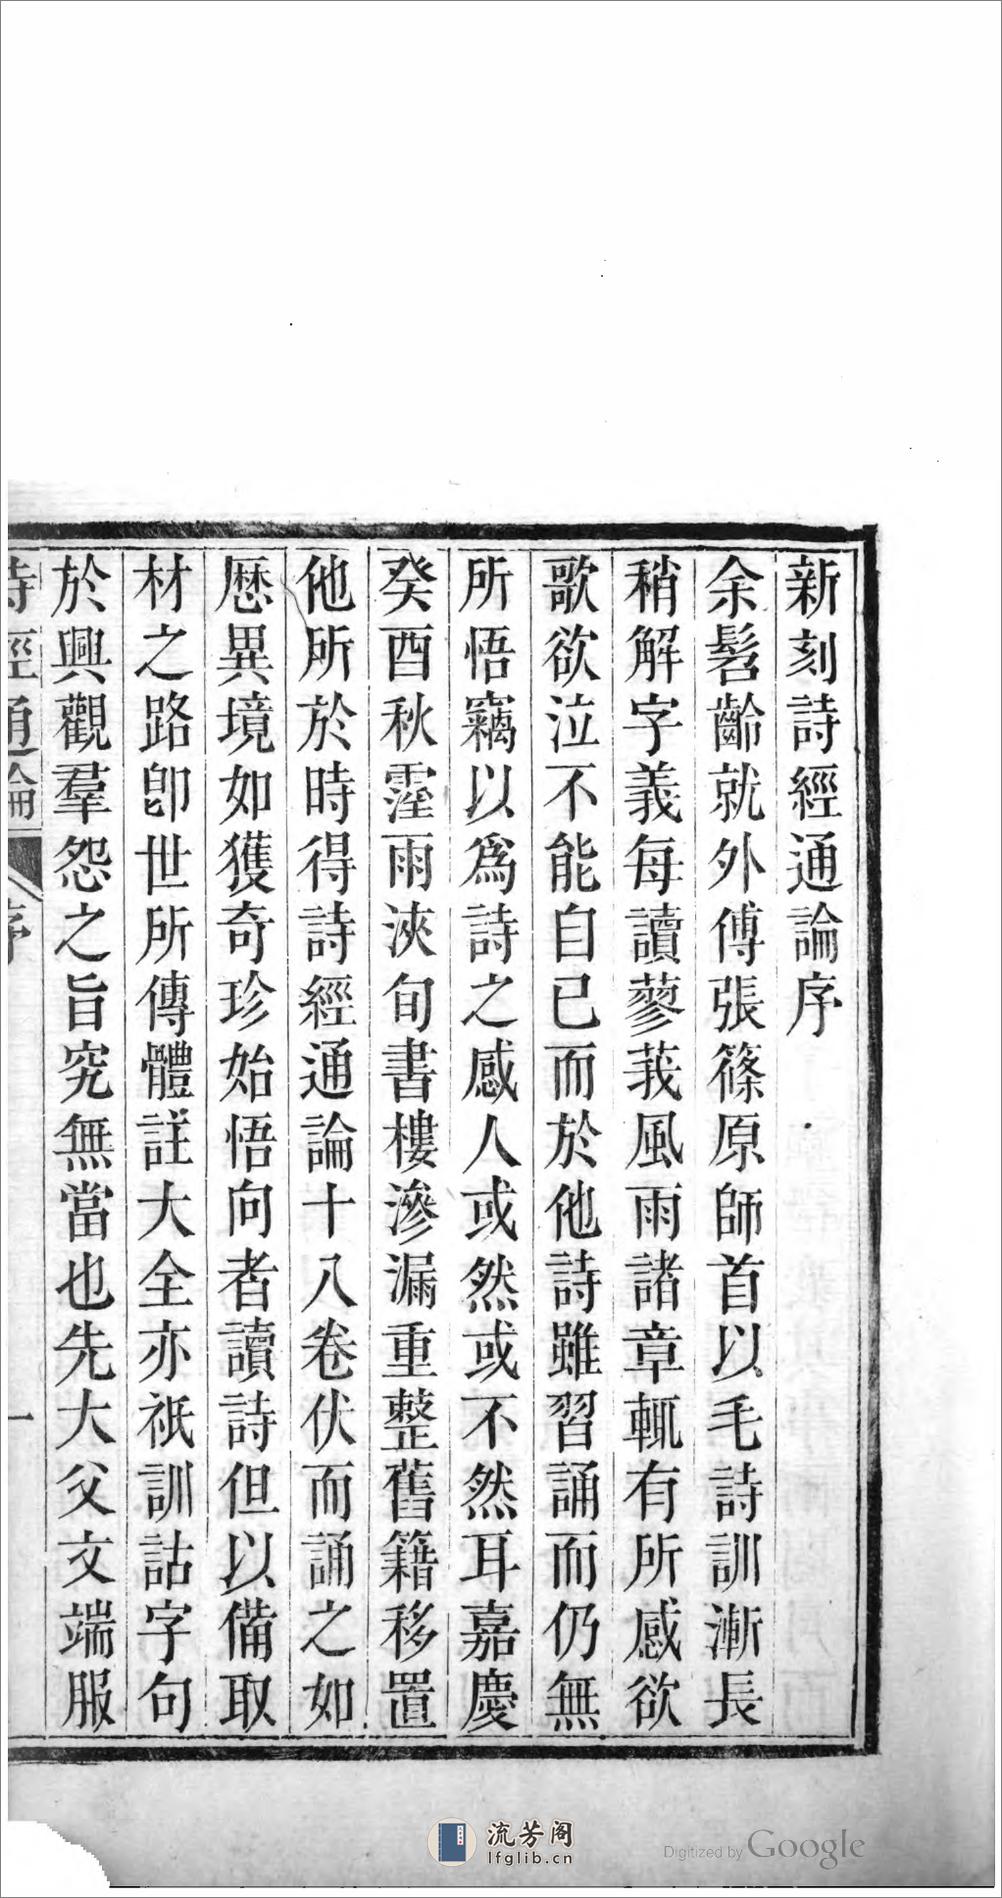 新刻詩經通論序
余髫齡就外傅張篠原師首以毛詩訓漸長
稍解字義每讀蓼莪風雨諸章輒有所感欲
歌欲泣不能自已而於他詩雖習誦而仍無
所悟竊以爲詩之感人或然或不然耳嘉慶
癸酉秋霪雨浹旬書樓滲漏重整舊籍移置
他所於時得詩經通論十八卷伏而誦之如
歷異境如獲奇珍始悟向者讀詩但以備取
材之路卽世所傳體註大全亦祇訓詁字句
於興觀羣怨之旨究無當也先大父文端服
詩經通論 序 一
流芳阁
lfglib.cn
Digitized by Google